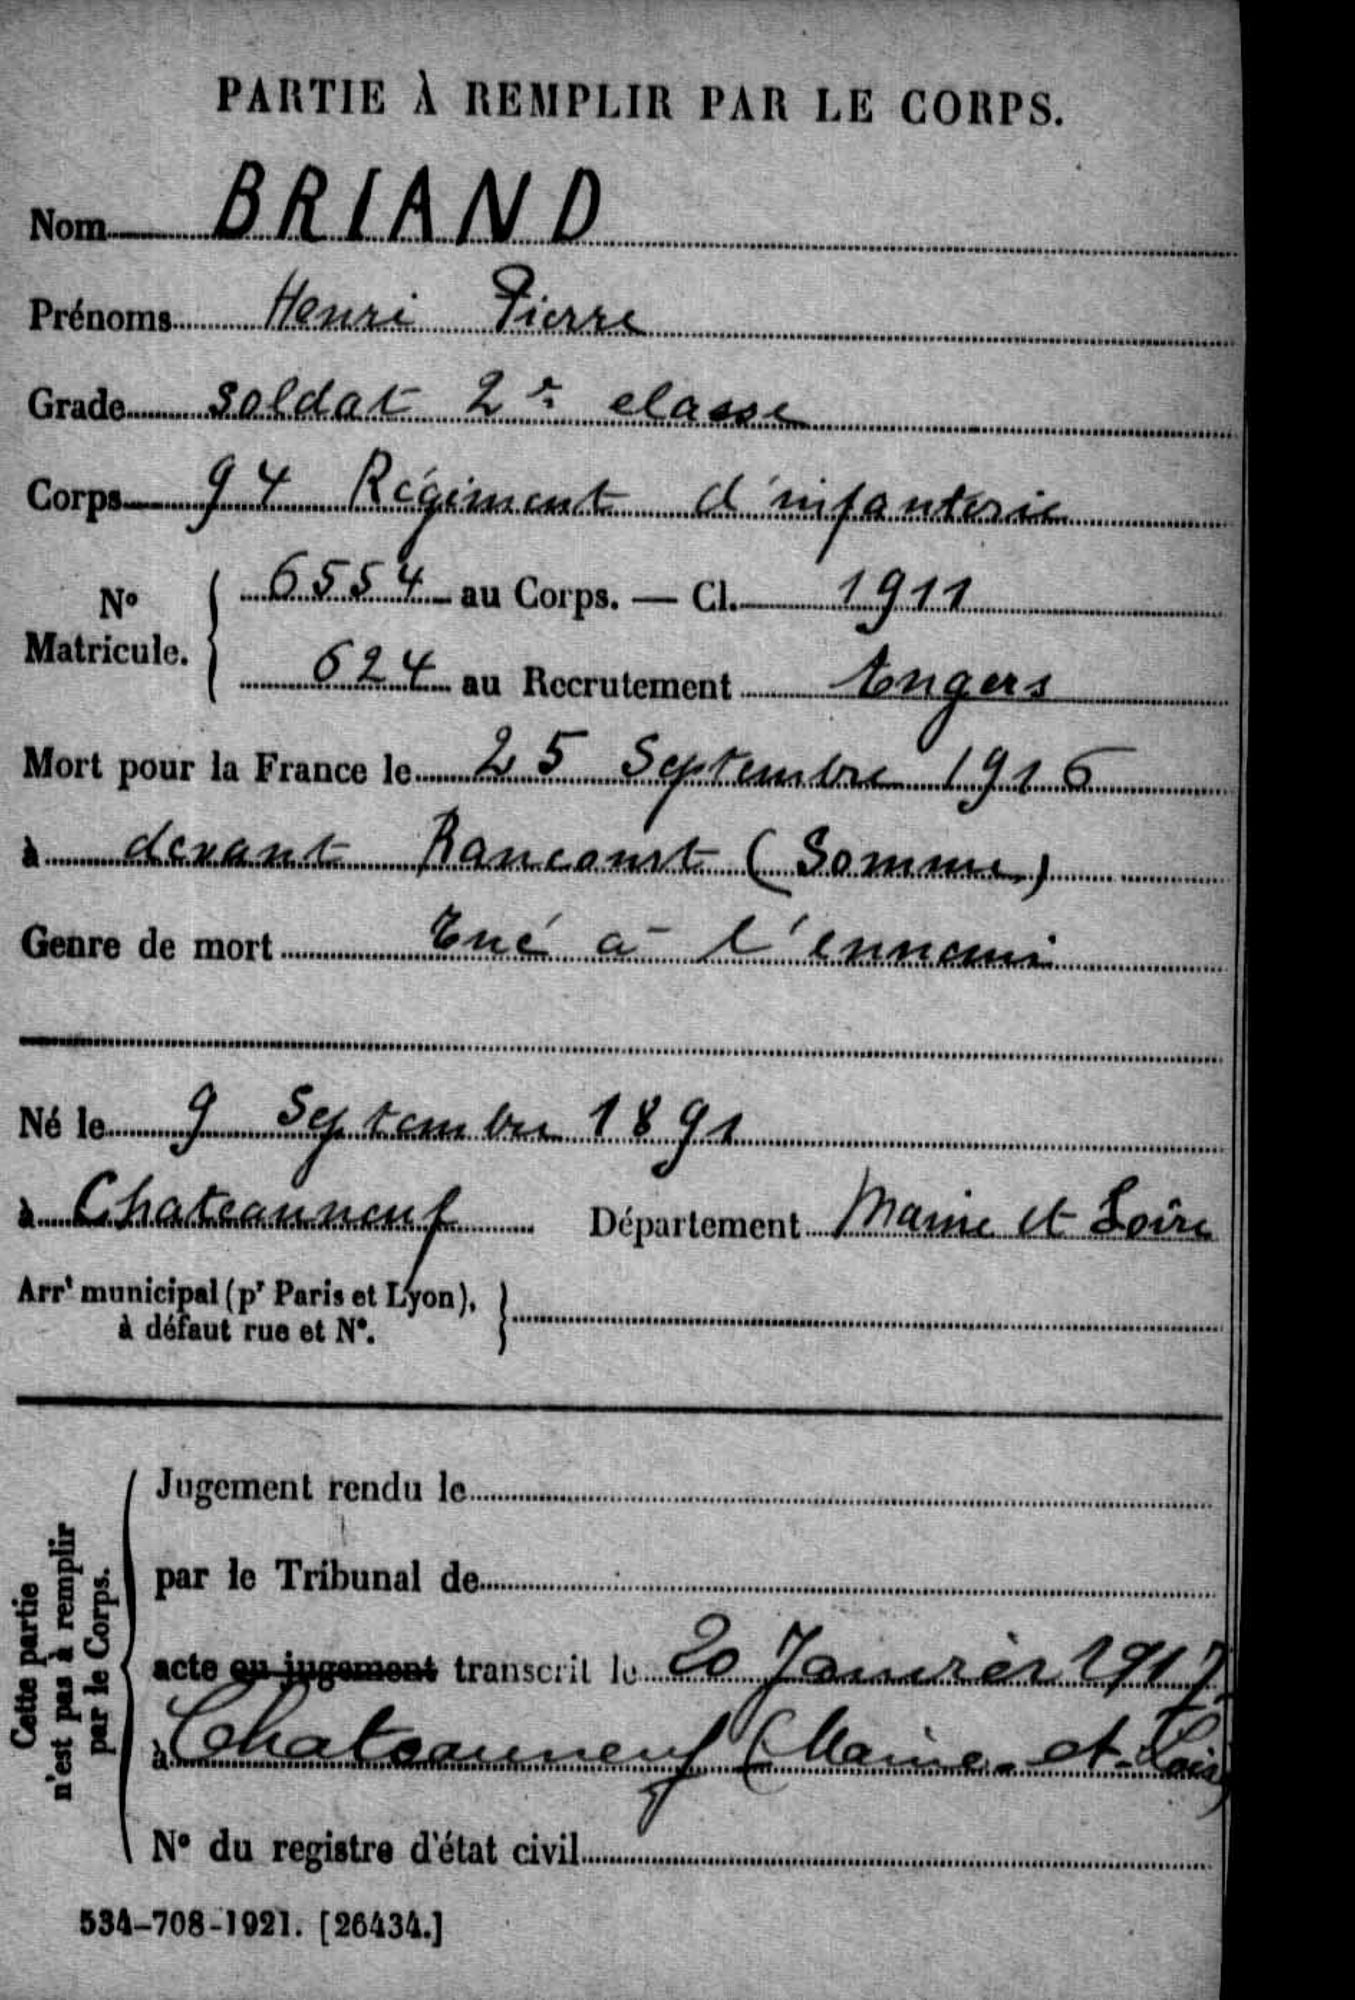 PARTIE À REMPLIR PAR LE CORPS.
Nom BRIAND
Prénoms Henri Pierre
Grade Soldat 2e classe
Corps 94 Régiment d'infanterie
N° Matricule. { 6554 au Corps. — Cl. 1911
624 au Recrutement Angers
Mort pour la France le 25 Septembre 1916
à devant Rancourt (Somme)
Genre de mort Tué à l'ennemi
Né le 9 Septembre 1891
à Chateauneuf Département Maine et Loire
Arrt municipal (pr Paris et Lyon), }
à défaut rue et N°.
Cette partie
n'est pas à remplir
par le Corps.
Jugement rendu le
par le Tribunal de
acte ou jugement transcrit le 20 Janvier 1917
à Chateauneuf (Maine-et-Loire)
N° du registre d'état civil
534-708-1921. [26434.]